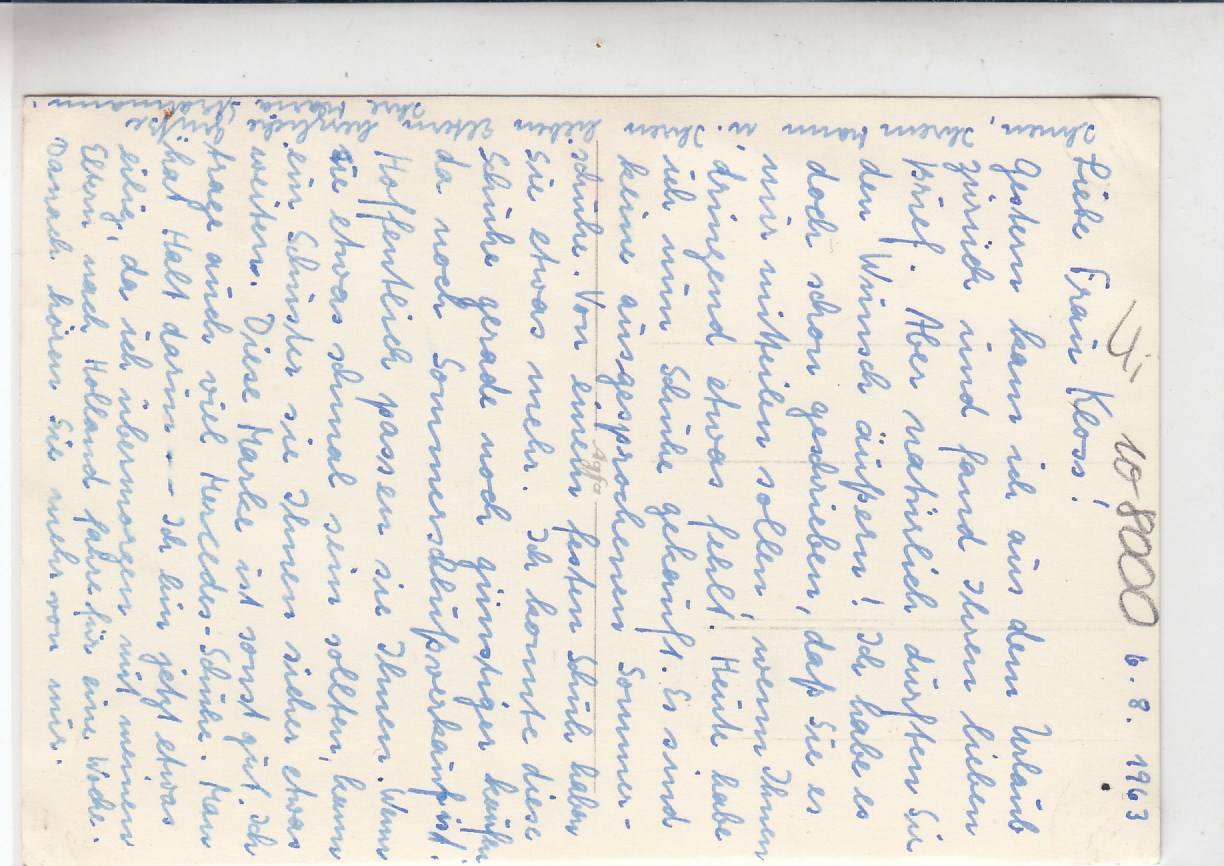 6.8.1963
Liebe Frau Kloss!
Gestern kam ich aus dem Urlaub
zurück und fand Ihren lieben
Brief. Aber natürlich durften Sie
den Wunsch äußern! Ich habe es
doch schon geschrieben, daß Sie es
mir mitteilen sollen, wenn Ihnen
dringend etwas fehlt. Heute habe
ich nun Schuhe gekauft. Es sind
keine ausgesprochenen Sommer-
schuhe. Von einem festen Schuh haben
Sie etwas mehr. Ich konnte diese
Schuhe gerade noch günstiger kaufen,
da noch Sommerschlußverkauf ist.
Hoffentlich passen sie Ihnen. Wenn
sie etwas schmal sein sollten, kann
ein Schuster sie Ihnen sicher etwas
weiten. Diese Marke ist sonst gut. Ich
trage auch viel Mercedes-Schuhe. Man
hat Halt darin. — Ich bin jetzt etwas
eilig, da ich übermorgen mit meinen
Eltern nach Holland fahre für eine Woche.
Danach hören Sie mehr von mir.
Ihnen, Ihrem Mann u. Ihren lieben Eltern herzliche Grüße
Ihre Maria Stratmann.
108000
Agfa